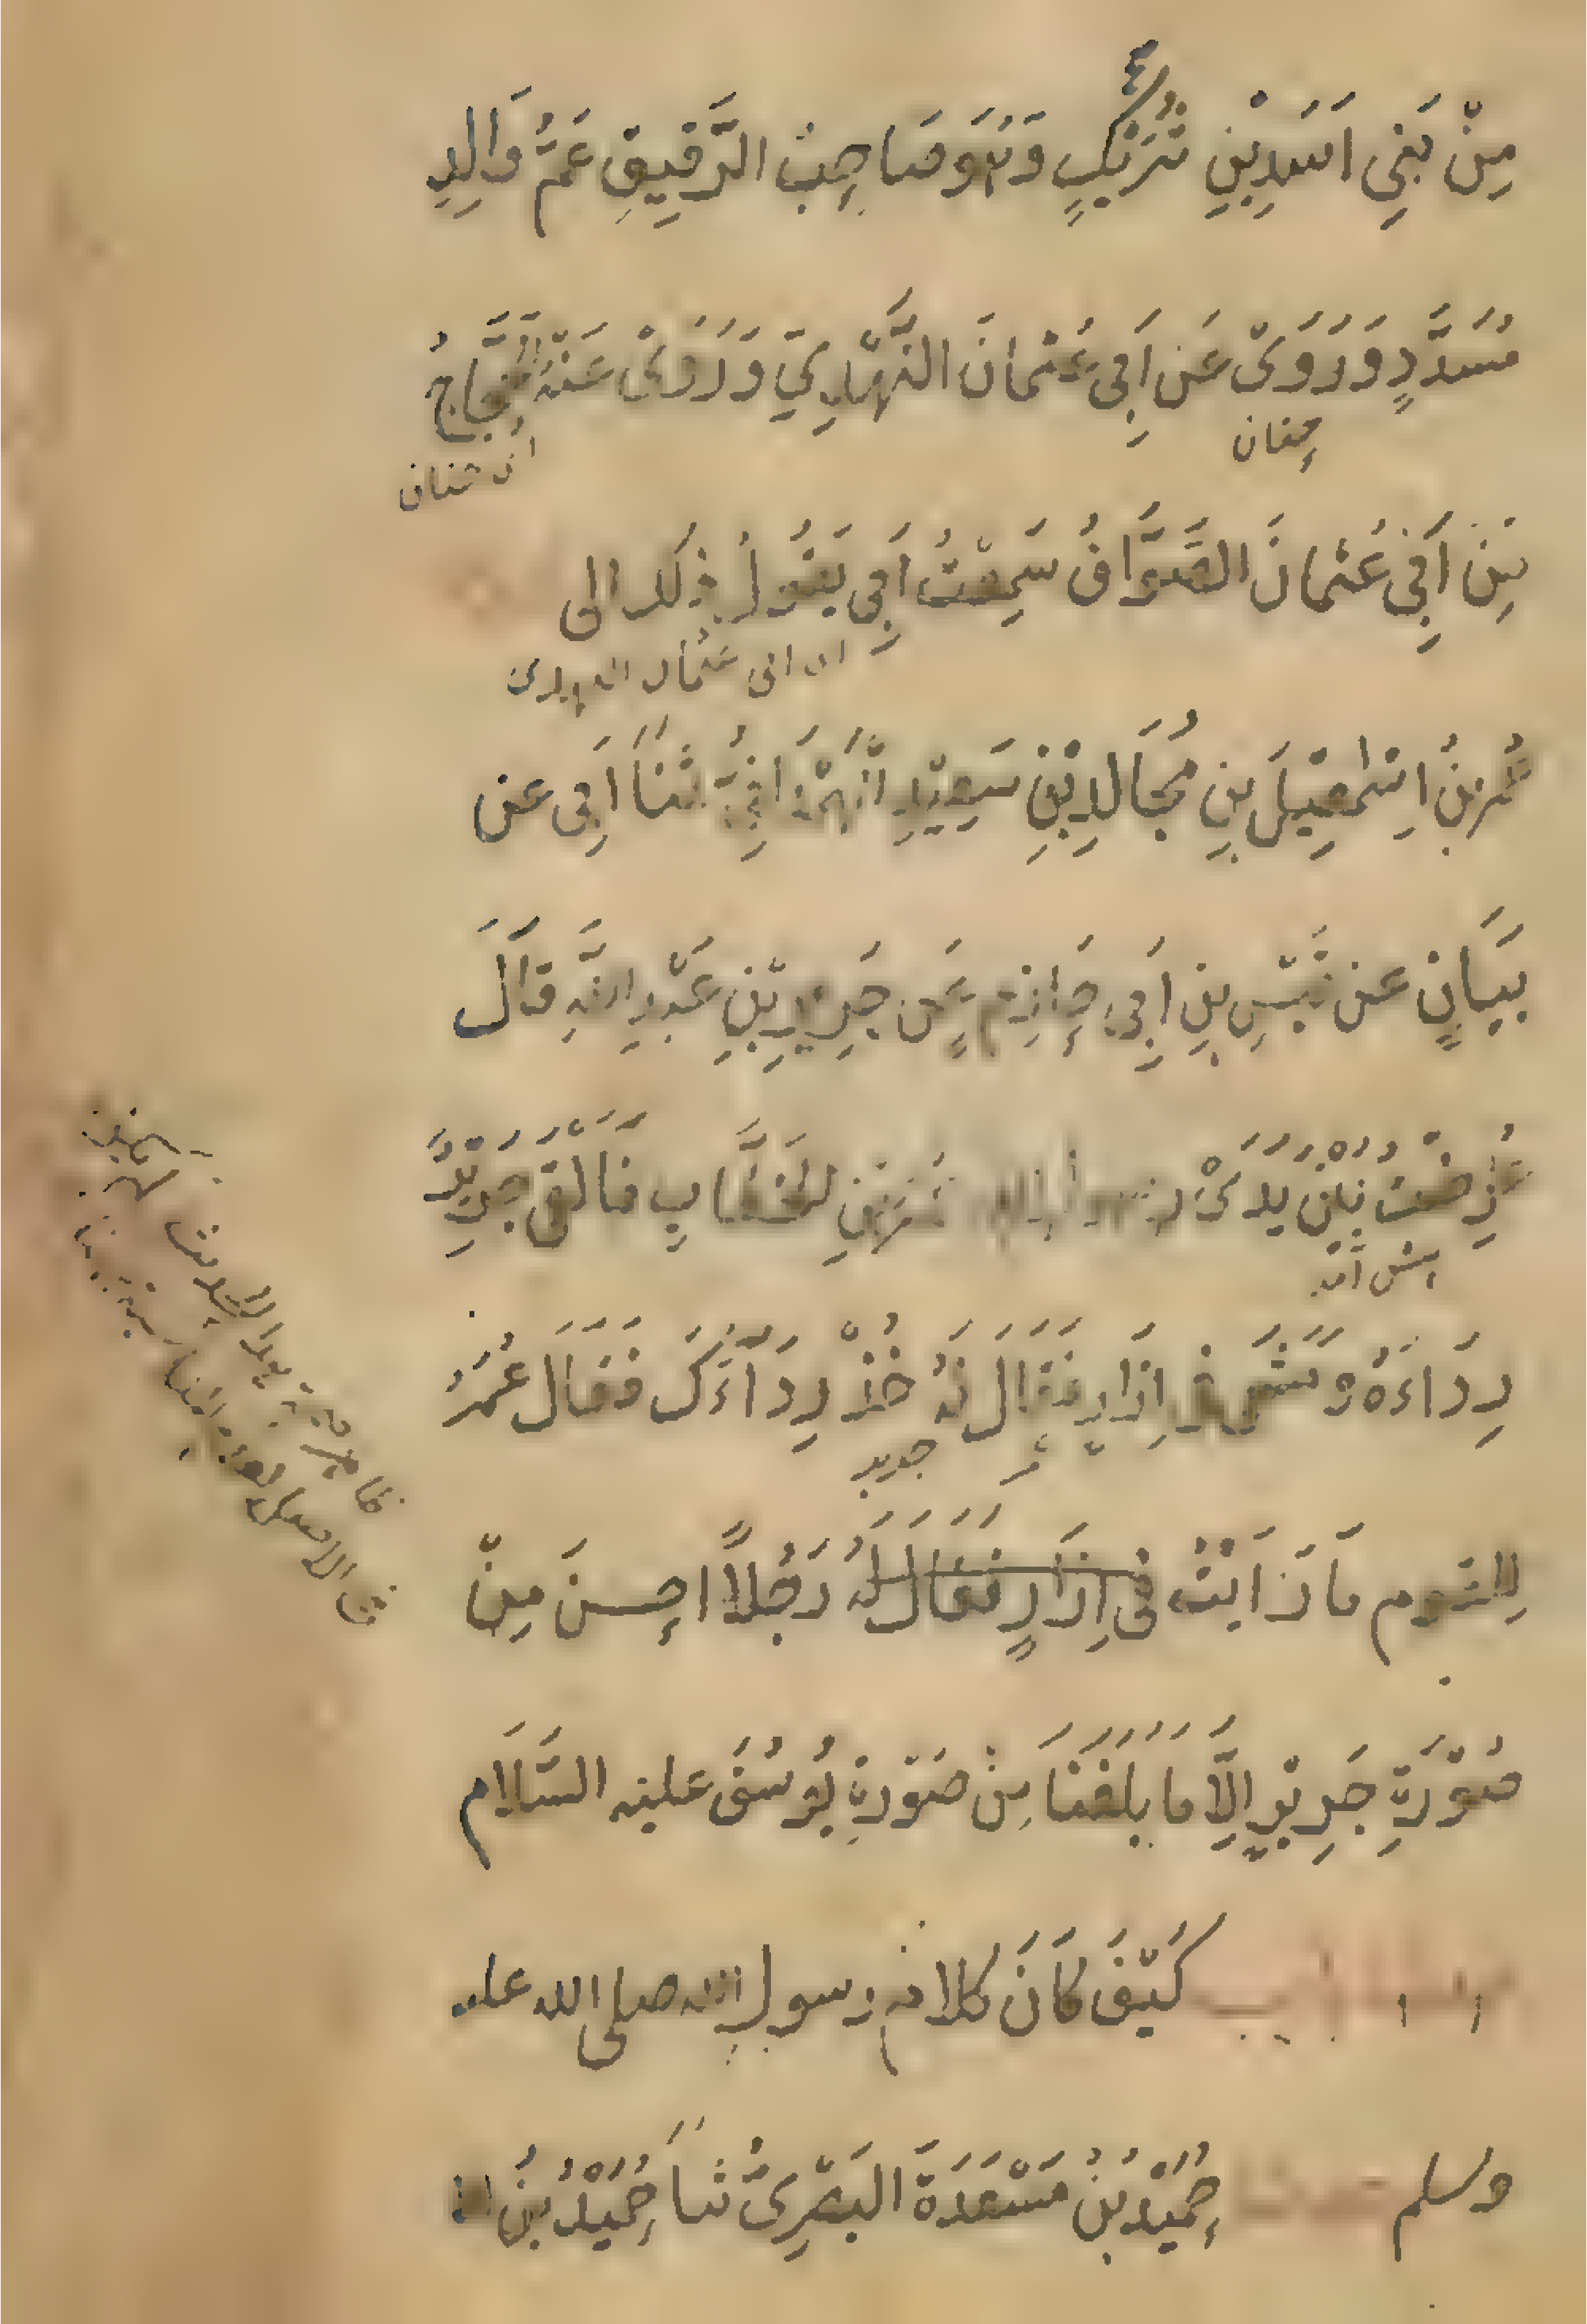 مِنْ بَنِي اَسَدِ بْنِ شُرَيْكٍ وَهُوَ صَاحِبُ الرَّقِيقِ عَمُّ وَالِدِ
مُسَدَّدٍ وَرَوَىْ عَن اَبِي عُثْمَانَ النَّهْدِيِّ وَرَوَىْ عَنْهُ الحَجَّاجُ
حنان
بْنُ اَبِي عُثْمَانَ الصَّوَّافُ سَمِعْتُ اَبِي يَقُولُ ذلك
ابى عثمان النهدى
عُمَرُ بنُ اِسْمٰعِيْلَ بنِ مُجَالِدِ بْنِ سَعِيْدِ الْهَمْدَانِيُّ ثَنَا اَبِي عن
بَيَانٍ عن قَيْسِ بنِ اَبِي حَازِمٍ عَن جَرِيْرِ بْنِ عَبْدِ اللهِ قَالَ
عُرِضْتُ بَيْنَ يَدَىْ عُمَرَ بْنِ الخَطَّابِ فَاَلْقَى جَرِيْرٌ
رِدَاءَهُ وَمَشَى فى اِزَارٍ فَقَالَ لَهُ خُذْ رِدَآءَكَ فَقَالَ عُمَرُ
جرير
لِلقوم مَا رَاَيْتُ فى اِزَارٍ فَقَالَ لَهُ رَجُلاً احسنَ مِنْ
صُوْرَةِ جَرِيْرٍ اِلَّا مَا بَلَغَنَا مِنْ صُوْرَةِ يُوسُفَ عليه السَّلَام
باب كَيْفَ كَانَ كلامُ رسولِ الله صلى الله عليه
وسلم حدثنا حُمَيْدُ بْنُ مَسْعَدَةَ البَصْرِىُّ ثنا حُمَيْدُ بْنُ